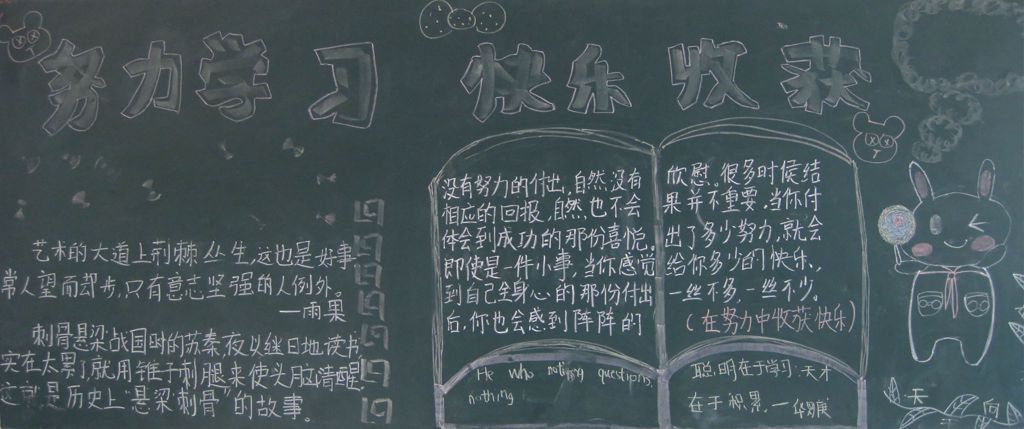 努力学习 快乐收获
艺术的大道上荊棘丛生,这也是好事
常人望而却步,只有意志坚强的人例外。
—雨果
刺骨悬梁战国时的苏秦夜以继日地读书
实在太累了就用锥子刺腿来使头脑清醒
这就是历史上“悬梁刺骨”的故事。
没有努力的付出,自然没有
相应的回报,自然也不会
体会到成功的那份喜悦,
即使是一件小事,当你感觉
到自己全身心的那份付出
后,你也会感到阵阵的
欣慰,很多时候结
果并不重要,当你付
出了多少努力,就会
给你多少的快乐,
一丝不多,一丝不少。
(在努力中收获快乐)
He who nothing questions,
nothing
聪明在于学习,天才
在于积累,—华罗庚
天 向